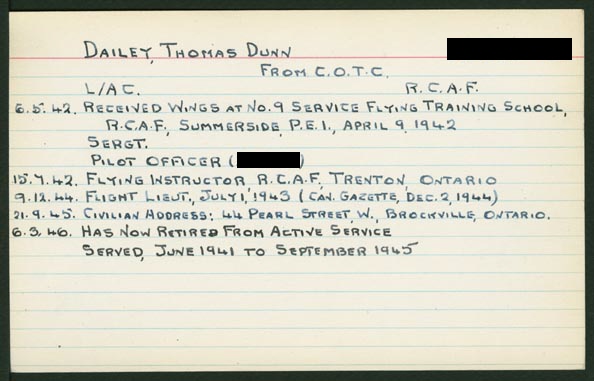 DAILEY, THOMAS DUNN
FROM C.O.T.C.
L/AC. R.C.A.F.
6.5.42. RECEIVED WINGS AT NO. 9 SERVICE FLYING TRAINING SCHOOL,
R.C.A.F., SUMMERSIDE, P.E.I., APRIL 9, 1942
SERGT.
PILOT OFFICER ( )
15.7.42. FLYING INSTRUCTOR, R.C.A.F., TRENTON, ONTARIO
9.12.44. FLIGHT LIEUT., JULY 1, 1943 (CAN. GAZETTE, DEC. 2, 1944)
21.9.45. CIVILIAN ADDRESS: 44 PEARL STREET, W., BROCKVILLE, ONTARIO.
6.3.46. HAS NOW RETIRED FROM ACTIVE SERVICE
SERVED, JUNE 1941 TO SEPTEMBER 1945